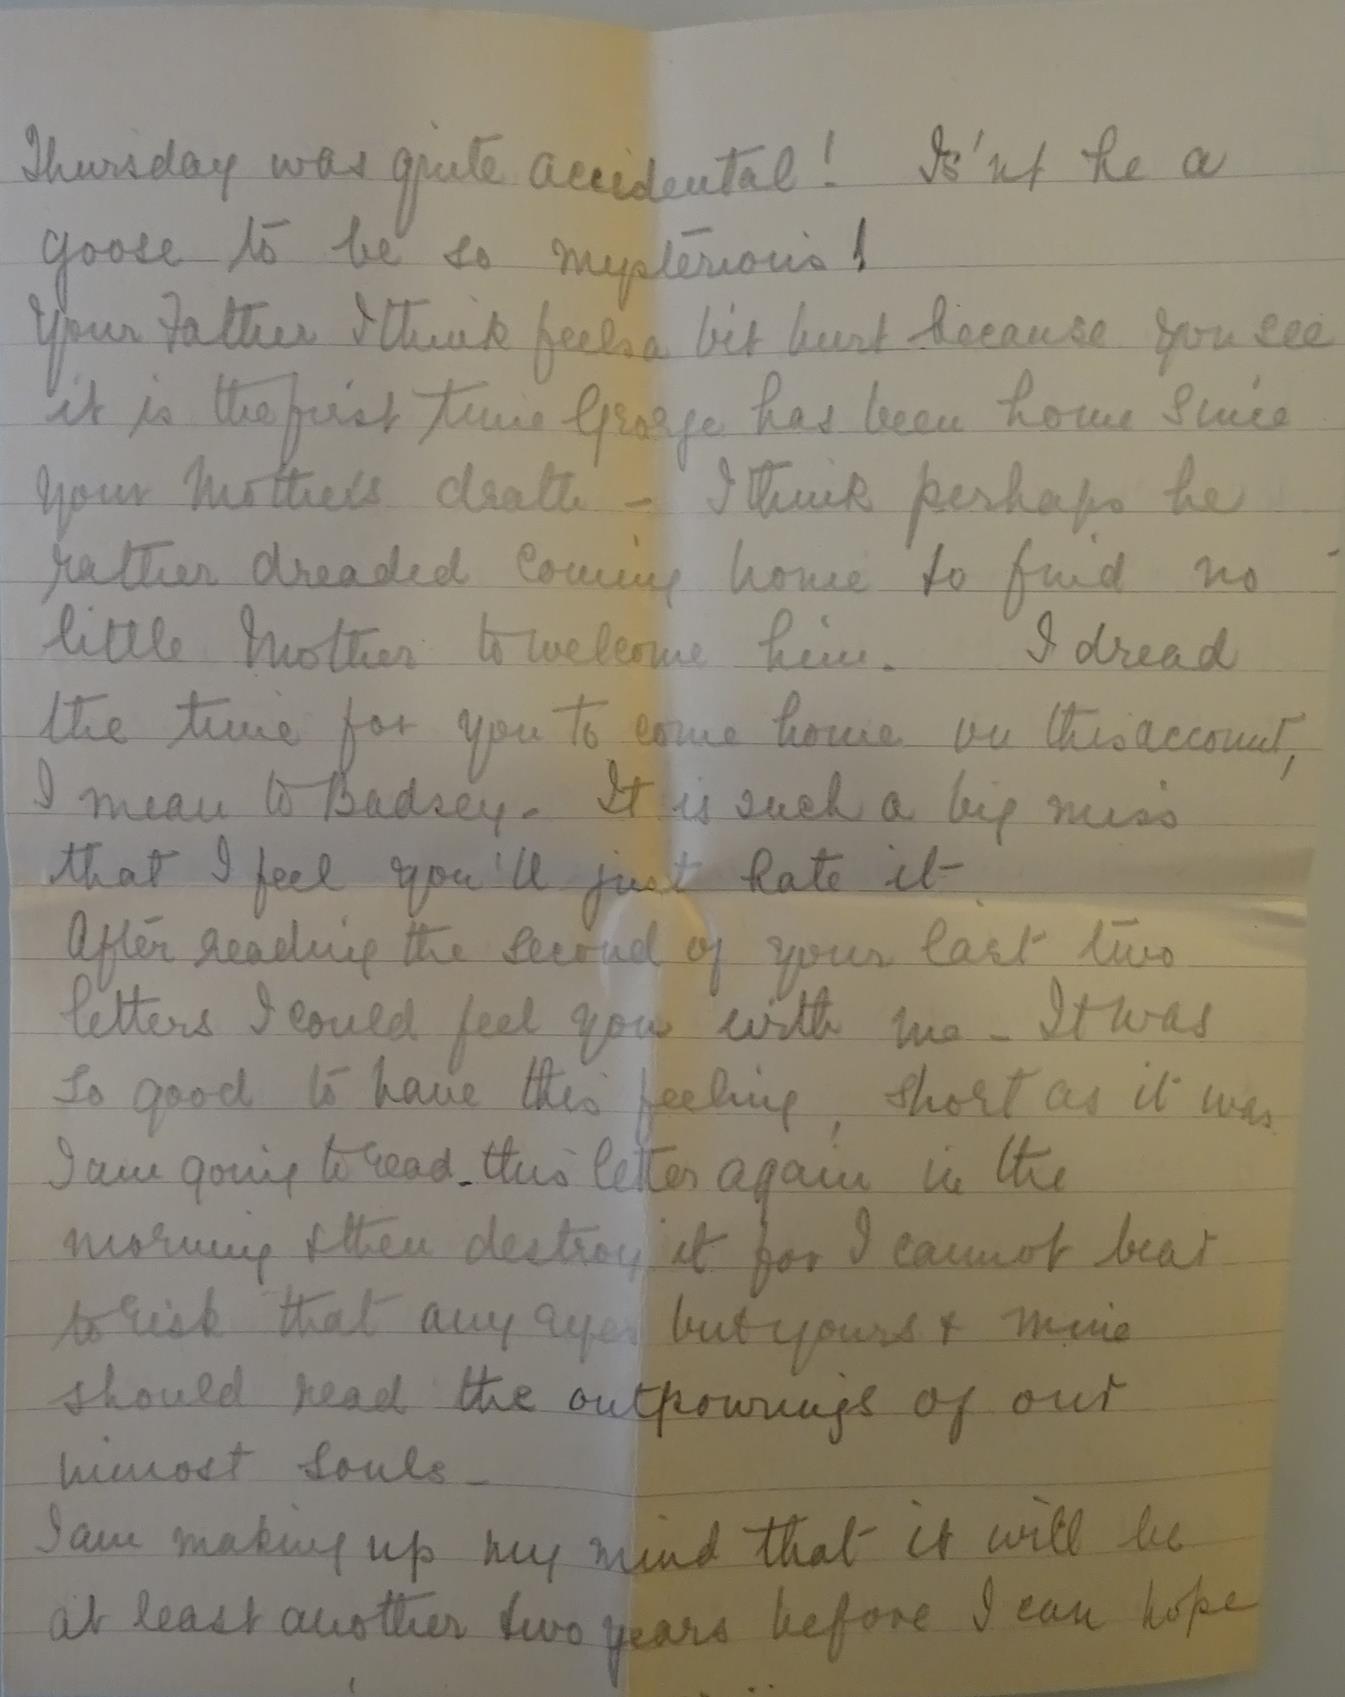 Thursday was quite accidental! Is'nt he a
goose to be so mysterious!
Your Father I think feels a bit hurt because you see
it is the first time George has been home since
your Mother's death - I think perhaps he
rather dreaded coming home to find no
little Mother to welcome him. I dread
the time for you to come home on this account,
I mean to Badsey. It is such a big miss
that I feel you'll just hate it -
After reading the second of your last two
letters I could feel you with me - It was
so good to have this feeling, short as it was
I am going to read this letter again in the
morning & then destroy it for I cannot bear
to risk that any eyes but yours & mine
should read the outpourings of our
inmost souls -
I am making up my mind that it will be
at least another two years before I can hope